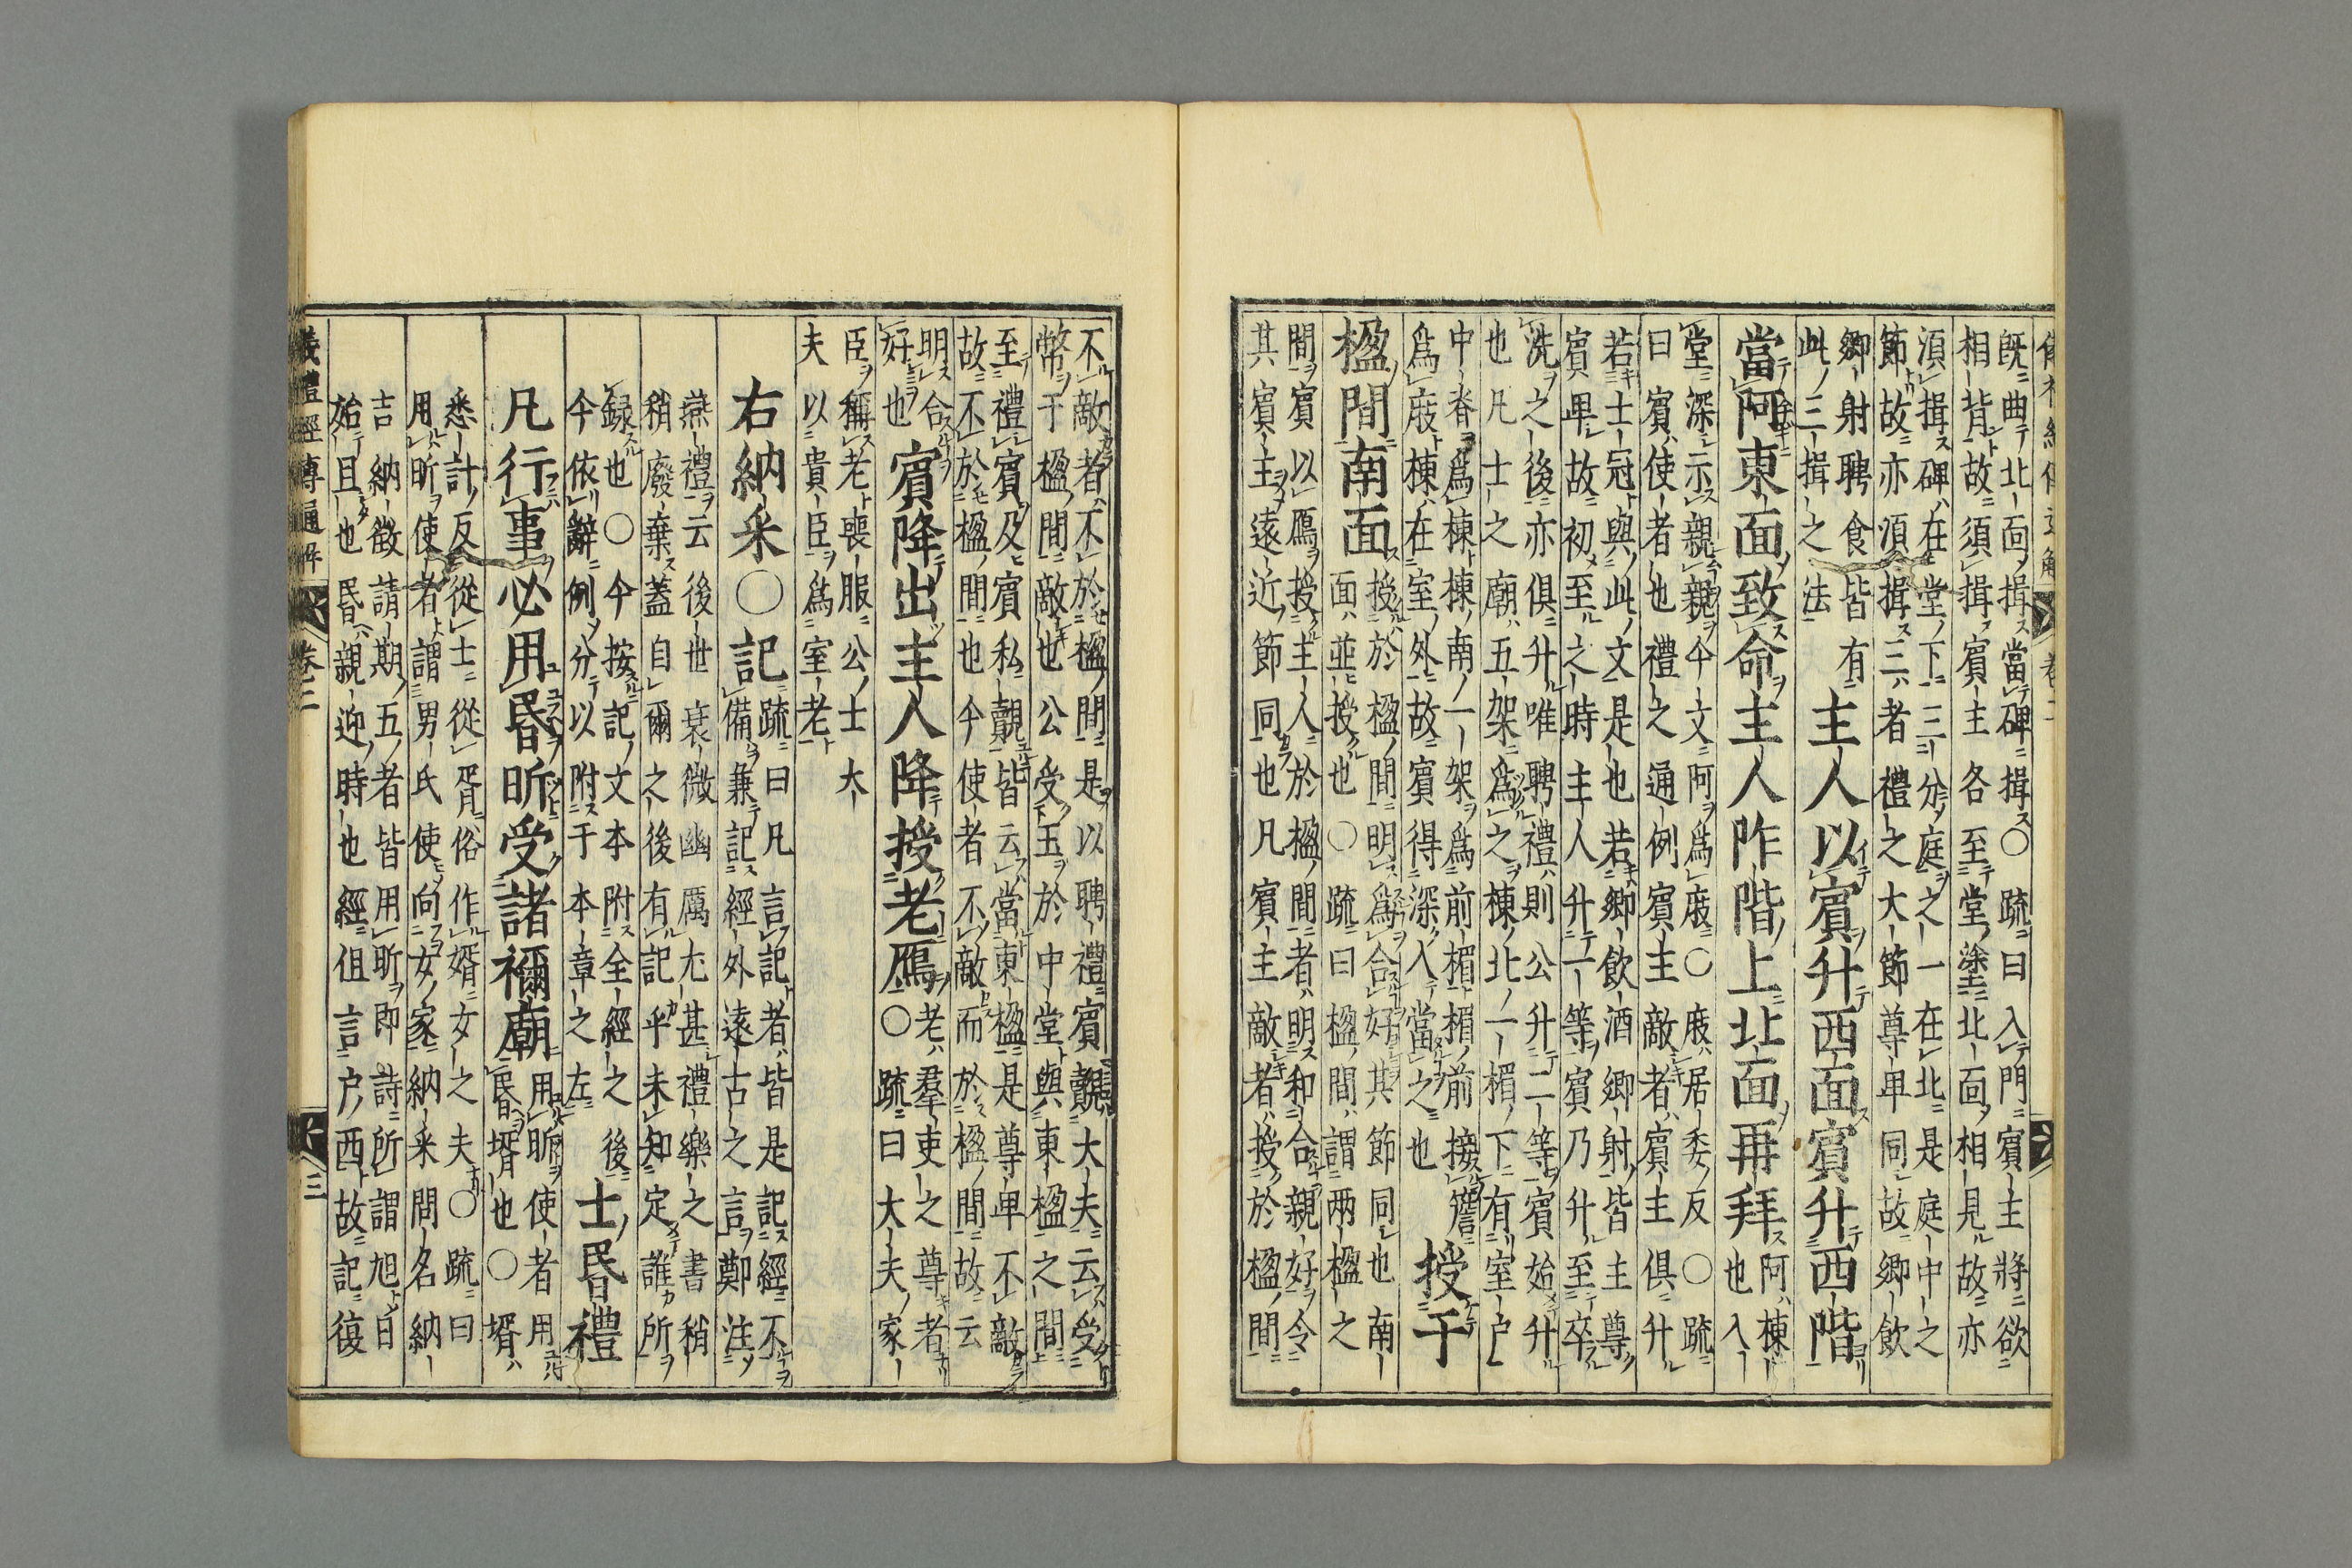 既曲北面揖當碑揖○疏曰入門賓主將欲
相背故須揖賓主各至堂塗北面相見故亦
須揖碑在堂下三分庭之一在北是庭中之
節故亦須揖三者禮之大節尊卑同故鄉飲
鄉射聘食皆有
此三揖之法
主人以賓升西面賓升西階
當阿東面致命主人阼階上北面再拜
阿棟也入
堂深示親親今文阿爲庪○庪居委反○疏
曰賓使者也禮之通例賓主敵者賓主俱升
若士冠與此文是也若鄉飲酒鄉射皆主尊
賓卑故初至之時主人升一等賓乃升至卒
洗之後亦俱升唯聘禮則公升二等賓始升
也凡士之廟五架爲之棟北一楣下有室戶
中脊爲棟棟南一架爲前楣楣前接簷
爲庪棟在室外故賓得深入當之也
授于
楹間南面
授於楹間明爲合好其節同也南
面並授也○疏曰楹間謂兩楹之
間賓以鴈授主人於楹間者明和合親好令
其賓主遠近節同也凡賓主敵者授於楹間
不敵者不於楹間是以聘禮賓覿大夫云受
幣于楹間敵也公受玉於中堂與東楹之間
至禮賓及賓私覿皆云當東楹是尊卑不敵
故不於楹間也今使者不敵而於楹間故云
明合
好也
賓降出主人降授老鴈○
老羣吏之尊者
疏曰大夫家
臣稱老喪服公士大
夫以貴臣爲室老
右納采○記
疏曰凡言記者皆是記經不
備兼記經外遠古之言鄭注
燕禮云後世衰微幽厲尤甚禮樂之書稍
稍廢棄蓋自爾之後有記乎未知定誰所
録也○今按記文本附全經之後
今依辭例分以附于本章之左
士昏禮
凡行事必用昏昕受諸禰廟
用昕使者用
昏壻也○壻
悉計反從士從胥俗作婿女之夫○疏曰
用昕使者謂男氏使向女家納采問名納
吉納徵請期五者皆用昕即詩所謂旭日
始旦也昏親迎時也經但言戶西故記復
儀禮經傳通解
卷二
三